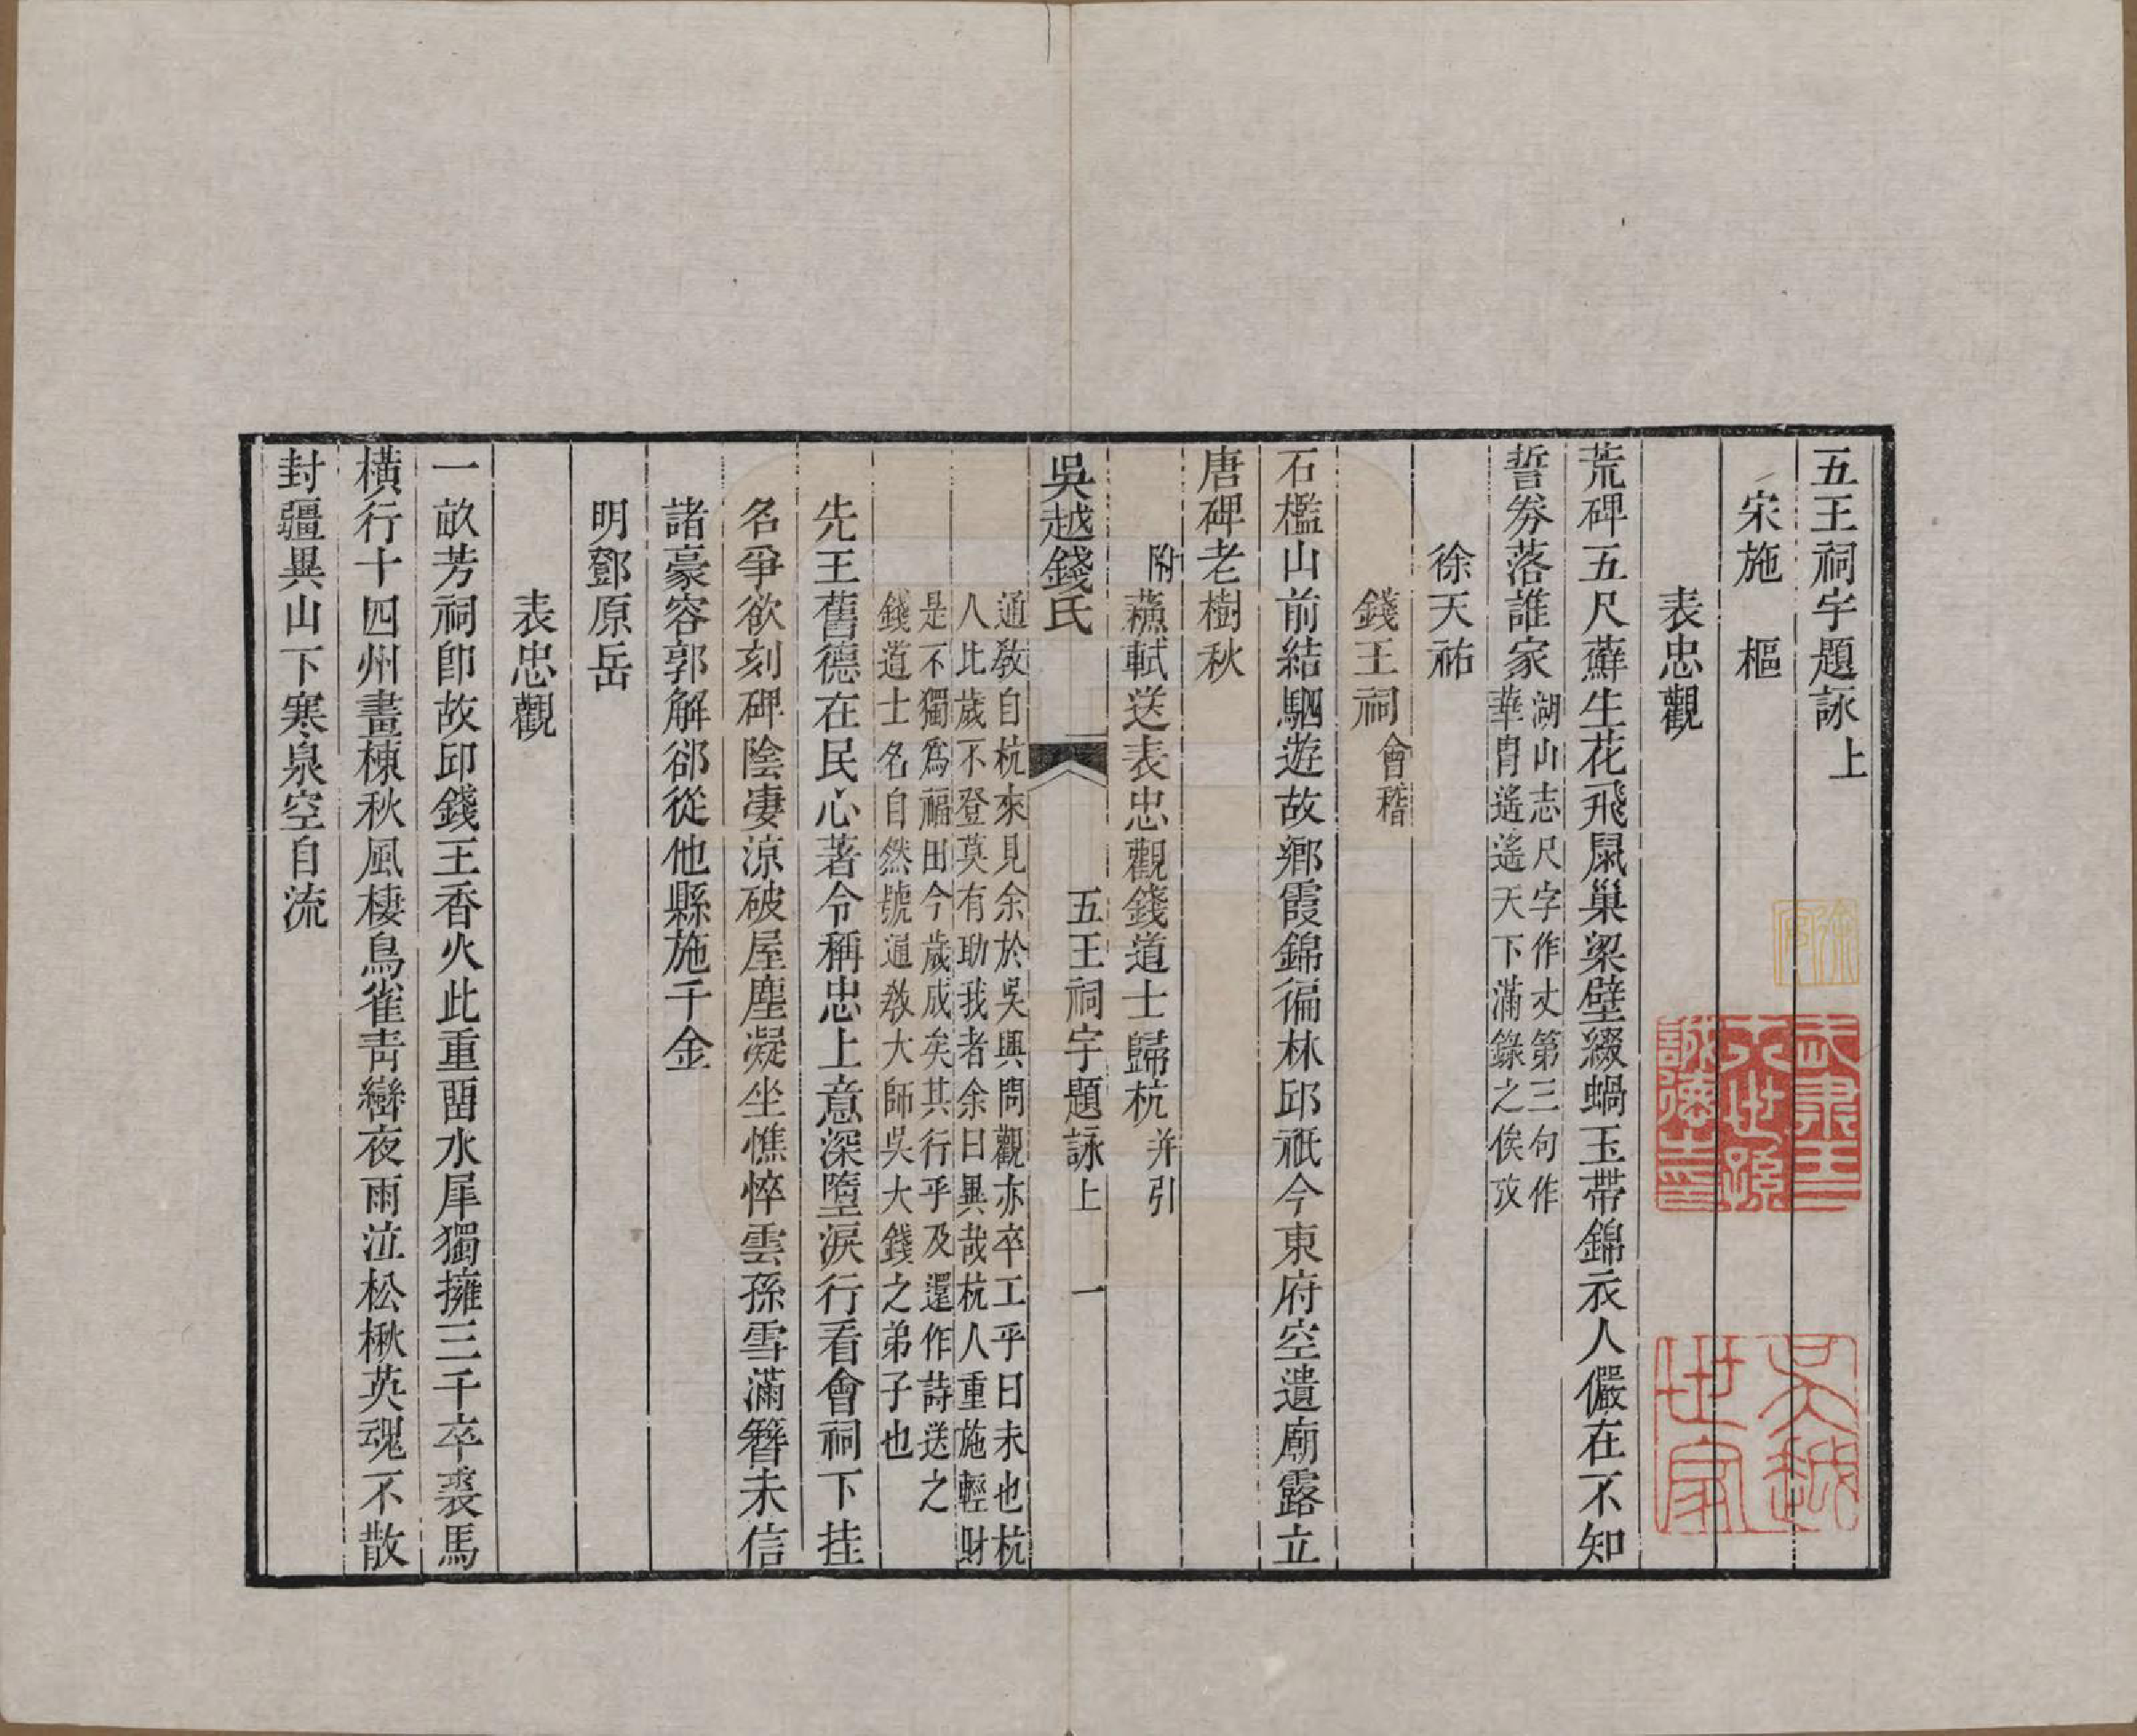 五王祠宇題詠上
宋施　樞
表忠觀
荒碑五尺蘚生花飛鼠巢梁壁綴蝸玉帶錦衣人儼在不知
誓券落誰家湖山志尺字作丈第三句作
華冑遙遙天下滿錄之俟攷
徐天祐
錢王祠會稽
石檻山前結駟遊故鄉霞錦徧林邱祇今東府空遺廟露立
唐碑老樹秋
附蘇軾送表忠觀錢道士歸杭并引
吳越錢氏　五王祠宇題詠上　一
通敎自杭來見余於吳興問觀亦卒工乎曰未也杭
人比歲不登莫有助我者余曰異哉杭人重施輕財
是不獨爲福田今歲成矣其行乎及還作詩送之
錢道士名自然號通敎大師吳大錢之弟子也
先王舊德在民心著令稱忠上意深墮淚行看會祠下挂
名爭欲刻碑陰凄涼破屋塵凝坐憔悴雲孫雪滿簪未信
諸豪容郭解郤從他縣施千金
明鄧原岳
表忠觀
一畝芳祠卽故邱錢王香火此重畱水犀獨擁三千卒裘馬
橫行十四州畫棟秋風棲鳥雀靑巒夜雨泣松楸英魂不散
封疆異山下寒泉空自流
武肅王三
十世孫
詠德士印
吳越
世家